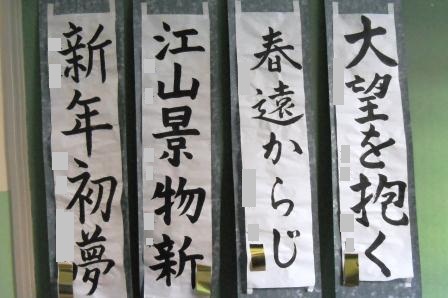 大望を抱く
春遠からじ
江山景物新
新年初夢